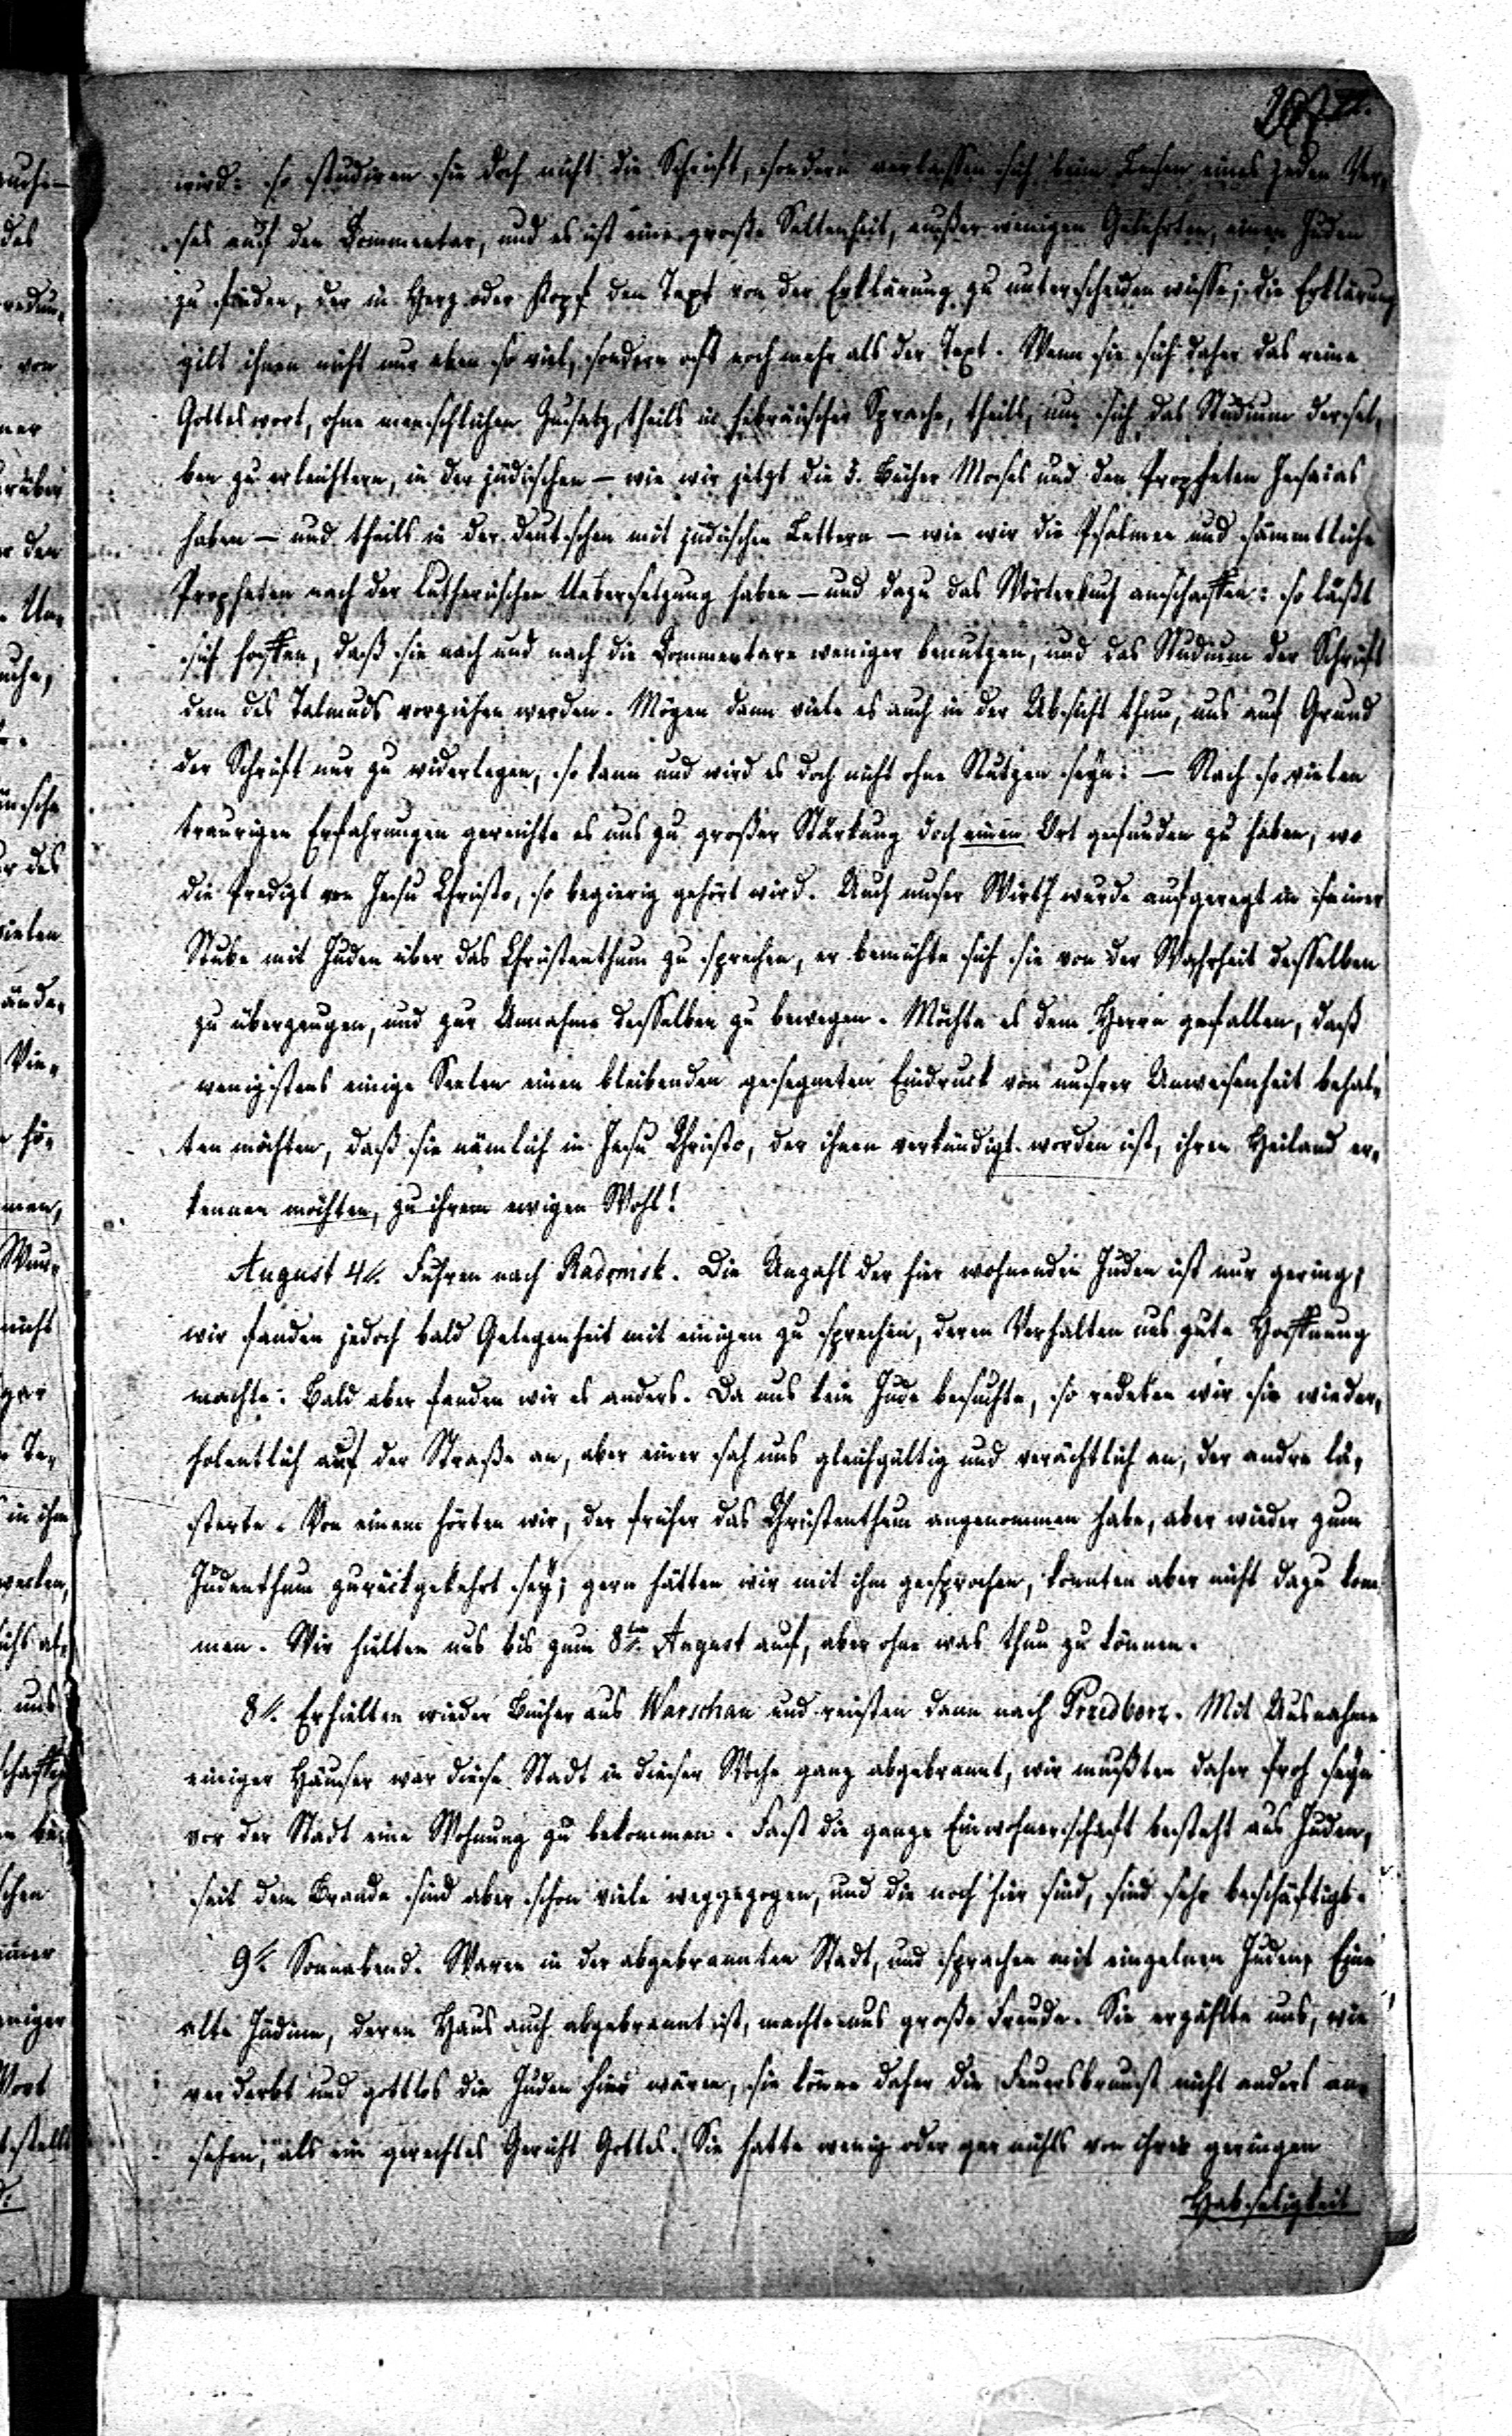 wird: so studiren sie doch nicht die Schrift, sondern verlassen sich beim Lesen eines jeden Ver-
ses auf den Commentar, und es ist eine große Seltenheit, außer wenigen Gelehrten, einen Juden
zu finden, der in Herz oder Kopf den Text von der Erklärung zu unterscheiden wisse; die Erklärung
gilt ihnen nicht nur eben so viel, sondern oft noch mehr als der Text. Wenn sie sich daher das reine
Gotteswort, ohne menschlichen Zusatz, theils in hebräischer Sprache, theils, um sich das Studium dersel-
ben zu erleichtern, in der jüdischen — wie wir jetzt die 5. Bücher Moses und den Propheten Jesaias
haben — und theils in der deutschen mit jüdischen Lettern — wie wir die Psalmen und sämmtliche
Propheten nach der Lutherischen Uebersetzung haben — und dazu das Wörterbuch anschaffen: so läßt
sich hoffen, daß sie nach und nach die Commentare weniger benutzen, und das Studium der Schrift
dem des Talmuds vorziehen werden. Mögen dann viele es auch in der Absicht thun, uns auf Grund
der Schrift nur zu widerlegen, so kann und wird es doch nicht ohne Nutzen seyn. — Nach so vielen
traurigen Erfahrungen gereichte es uns zu großer Stärkung doch einen Ort gefunden zu haben, wo
die Predigt von Jesu Christo, so begierig gehört wird. Auch unser Wirth wurde aufgeregt in seiner
Stube mit Juden über das Christenthum zu sprechen, er bemühte sich sie von der Wahrheit desselben
zu überzeugen, und zur Annahme desselben zu bewegen. Möchte es dem Herrn gefallen, daß
wenigstens einige Seelen einen bleibenden gesegneten Eindruck von unsrer Anwesenheit behal-
ten möchten, daß sie nämlich in Jesu Christo, der ihnen verkündigt worden ist, ihren Heiland er-
kennen möchten, zu ihrem ewigen Wohl!
August 4t. Fuhren nach Radomsk. Die Anzahl der hier wohnenden Juden ist nur gering;
wir fanden jedoch bald Gelegenheit mit einigen zu sprechen, deren Verhalten uns gute Hoffnung
machte. Bald aber fanden wir es anders. Da uns kein Jude besuchte, so redeten wir sie wieder-
holentlich auf der Straße an, aber einer sah uns gleichgültig und verächtlich an, der andre lä-
sterte. Von einem hörten wir, der früher das Christenthum angenommen habe, aber wieder zum
Judenthum zurückgekehrt sey; gern hätten wir mit ihm gesprochen, konnten aber nicht dazu kom
men. Wir hielten uns bis zum 8ten August auf, aber ohne was thun zu können.
8t. Erhielten wieder Bücher aus Warschau und reisten dann nach Przedborz. Mit Ausnahme
einiger Häuser war diese Stadt in dieser Woche ganz abgebrannt, wir mußten daher froh seyn
vor der Stadt eine Wohnung zu bekommen. Fast die ganze Einwohnerschaft besteht aus Juden,
seit dem Brande sind aber schon viele weggezogen, und die noch hier sind, sind sehr beschäftigt.
9t. Sonnabend. Waren in der abgebrannten Stadt, und sprachen mit einzelnen Juden. Eine
alte Jüdinn, deren Haus auch abgebrannt ist, machte uns große Freude. Sie erzählte uns, wie
verderbt und gottlos die Juden hier wären, sie könne daher die Feuersbrunst nicht anders an-
sehen, als ein gerechtes Gericht Gottes. Sie hatte wenig oder gar nichts von ihrer geringen
Habseligkeit